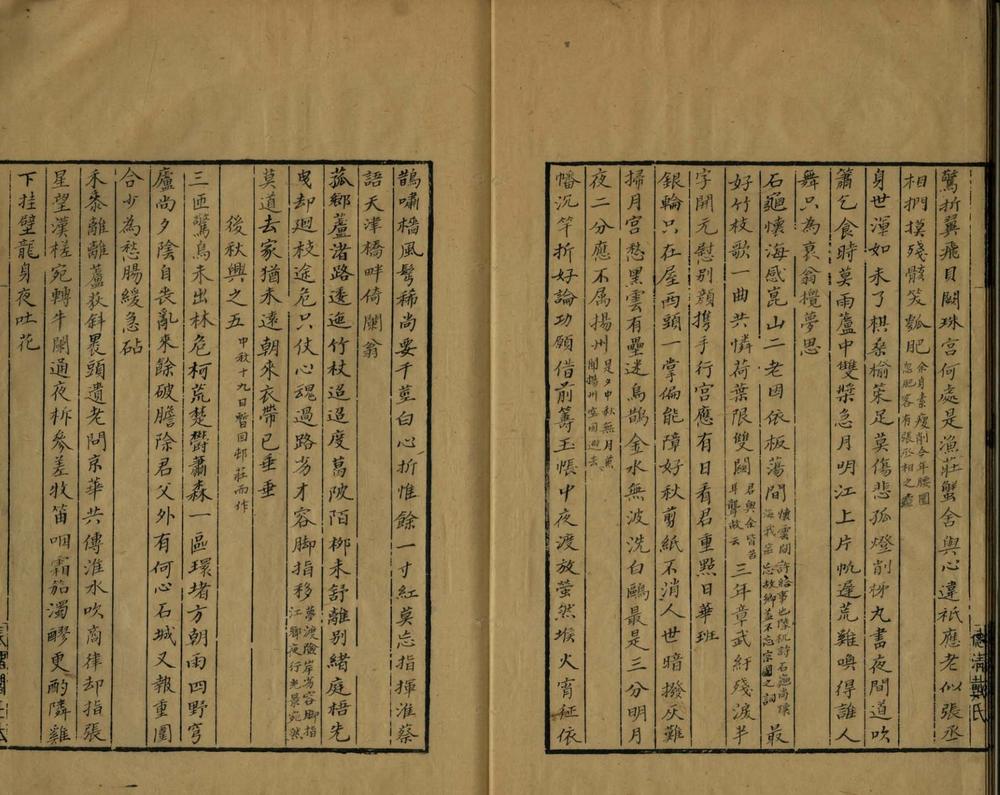 驚折翼飛貝闕珠宮何處是漁莊蟹舍與心違祇應老似張丞
相捫摸殘骸笑瓠肥余身素瘦削今年腰圍
忽肥客有張丞相之
身世渾如未了棋桑榆策足莫傷悲孤燈削柹丸書夜間道吹
簫乞食時莫雨蘆中雙槳急月明江上片帆遲荒雞喚得誰人
舞只為衰翁攪夢思
石龜懷海感崑山二老因依板蕩間懷雲間許給事也陸机詩石龜尚懷
海我寧忘故鄉蓋不忘宗國之詞最
好竹枝歌一曲共憐荷葉限雙闗君與余皆苦
耳聾故云三年章武紆殘淚半
字開元慰別顔携手行宮應有日看君重點日華班
銀輪只在屋西頭一掌偏能障好秋剪紙不消人世暗撥灰難
掃月宮愁黑雲有壘迷烏鵲金水無波洗白鷗最是三分明月
夜二分應不属揚州是夕中秋無月兼
聞揚州室回避去
幡沉竿折好論功願借前籌玉帳中夜渡放螢然堠火宵征依
鵲嘯檣風髩稀尚要千莖白心折惟餘一寸紅莫忘指揮淮蔡
語天津橋畔倚闌翁
菰鄉蘆渚路透迤竹杖迢迢度萬陂陌栁未舒離別緒庭梧先
曳却廻枝途危只仗心魂過路劣才容脚指移夢渡險岸劣容脚指
江鄉夜行光景宛然
莫道去家猶未遠朝來衣帶已垂垂
後秋興之五中秋十九日暫回邨莊而作
三匝驚烏未出林危柯荒楚欝蕭森一區環堵方朝雨四野穹
廬尚夕陰自丧亂來餘破膽除君父外有何心石城又報重圍
合少為愁腸緩急砧
禾黍離離蘆荻斜畏頭遺老問京華共傳淮水吹商律却指張
星望漢槎宛轉牛闌通夜柝參差牧笛咽霜笳濁醪更酌隣雞
下挂壁龍身夜吐花
德清戴氏